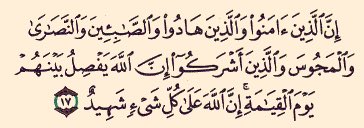 إِنَّ ٱلَّذِينَ ءَامَنُوا۟ وَٱلَّذِينَ هَادُوا۟ وَٱلصَّٰبِـِٔينَ وَٱلنَّصَٰرَىٰ
وَٱلْمَجُوسَ وَٱلَّذِينَ أَشْرَكُوٓا۟ إِنَّ ٱللَّهَ يَفْصِلُ بَيْنَهُمْ
يَوْمَ ٱلْقِيَٰمَةِ ۚ إِنَّ ٱللَّهَ عَلَىٰ كُلِّ شَىْءٍ شَهِيدٌ ١٧